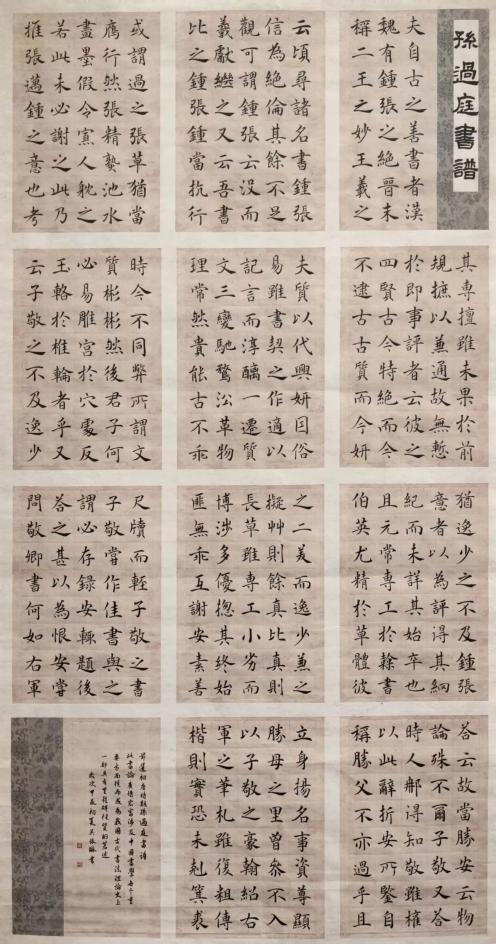 孫過庭書譜
夫自古之善書者漢
魏有鍾張之絕晉末
稱二王之妙王羲之
云頃尋諸名書鍾張
信為絕倫其餘不足
觀可謂鍾張云沒而
羲獻繼之又云吾書
比之鍾張鍾當抗行
或謂過之張草猶當
鴈行然張精熟池水
盡墨假令寡人耽之
若此未必謝之此乃
推張邁鍾之意也考
其專擅雖未果於前
規摭以兼通故無慙
於即事評者云彼之
四賢古今特絕而今
不逮古古質而今妍
夫質以代興妍因俗
易雖書契之作適以
記言而淳醨一遷質
文三變馳騖沿革物
理常然貴能古不乖
時今不同弊所謂文
質彬彬然後君子何
必易雕宮於穴處反
玉輅於椎輪者乎又
云子敬之不及逸少
猶逸少之不及鍾張
意者以為評得其綱
紀而未詳其始卒也
且元常專工於隸書
伯英尤精於草體彼
之二美而逸少兼之
擬艸則餘真比真則
長草雖專工小劣而
博涉多優揔其終始
匪無乖互謝安素善
尺牘而輕子敬之書
子敬嘗作佳書與之
謂必存錄安輒題後
答之甚以為恨安嘗
問敬卿書何如右軍
答云故當勝安云物
論殊不爾子敬又答
時人那得知敬雖權
以此辭折安所鑒自
稱勝父不亦過乎且
立身揚名事資尊顯
勝母之里曾參不入
以子敬之豪翰紹右
軍之筆札雖復粗傳
楷則實恐未剋箕裘
節選初唐時期孫過庭書譜
此書論廣博宏富涉及中國書學各个重
要方面成為我國古代書法理論史上
一部具有里程碑性質的著述
歲次甲辰初夏吳張書